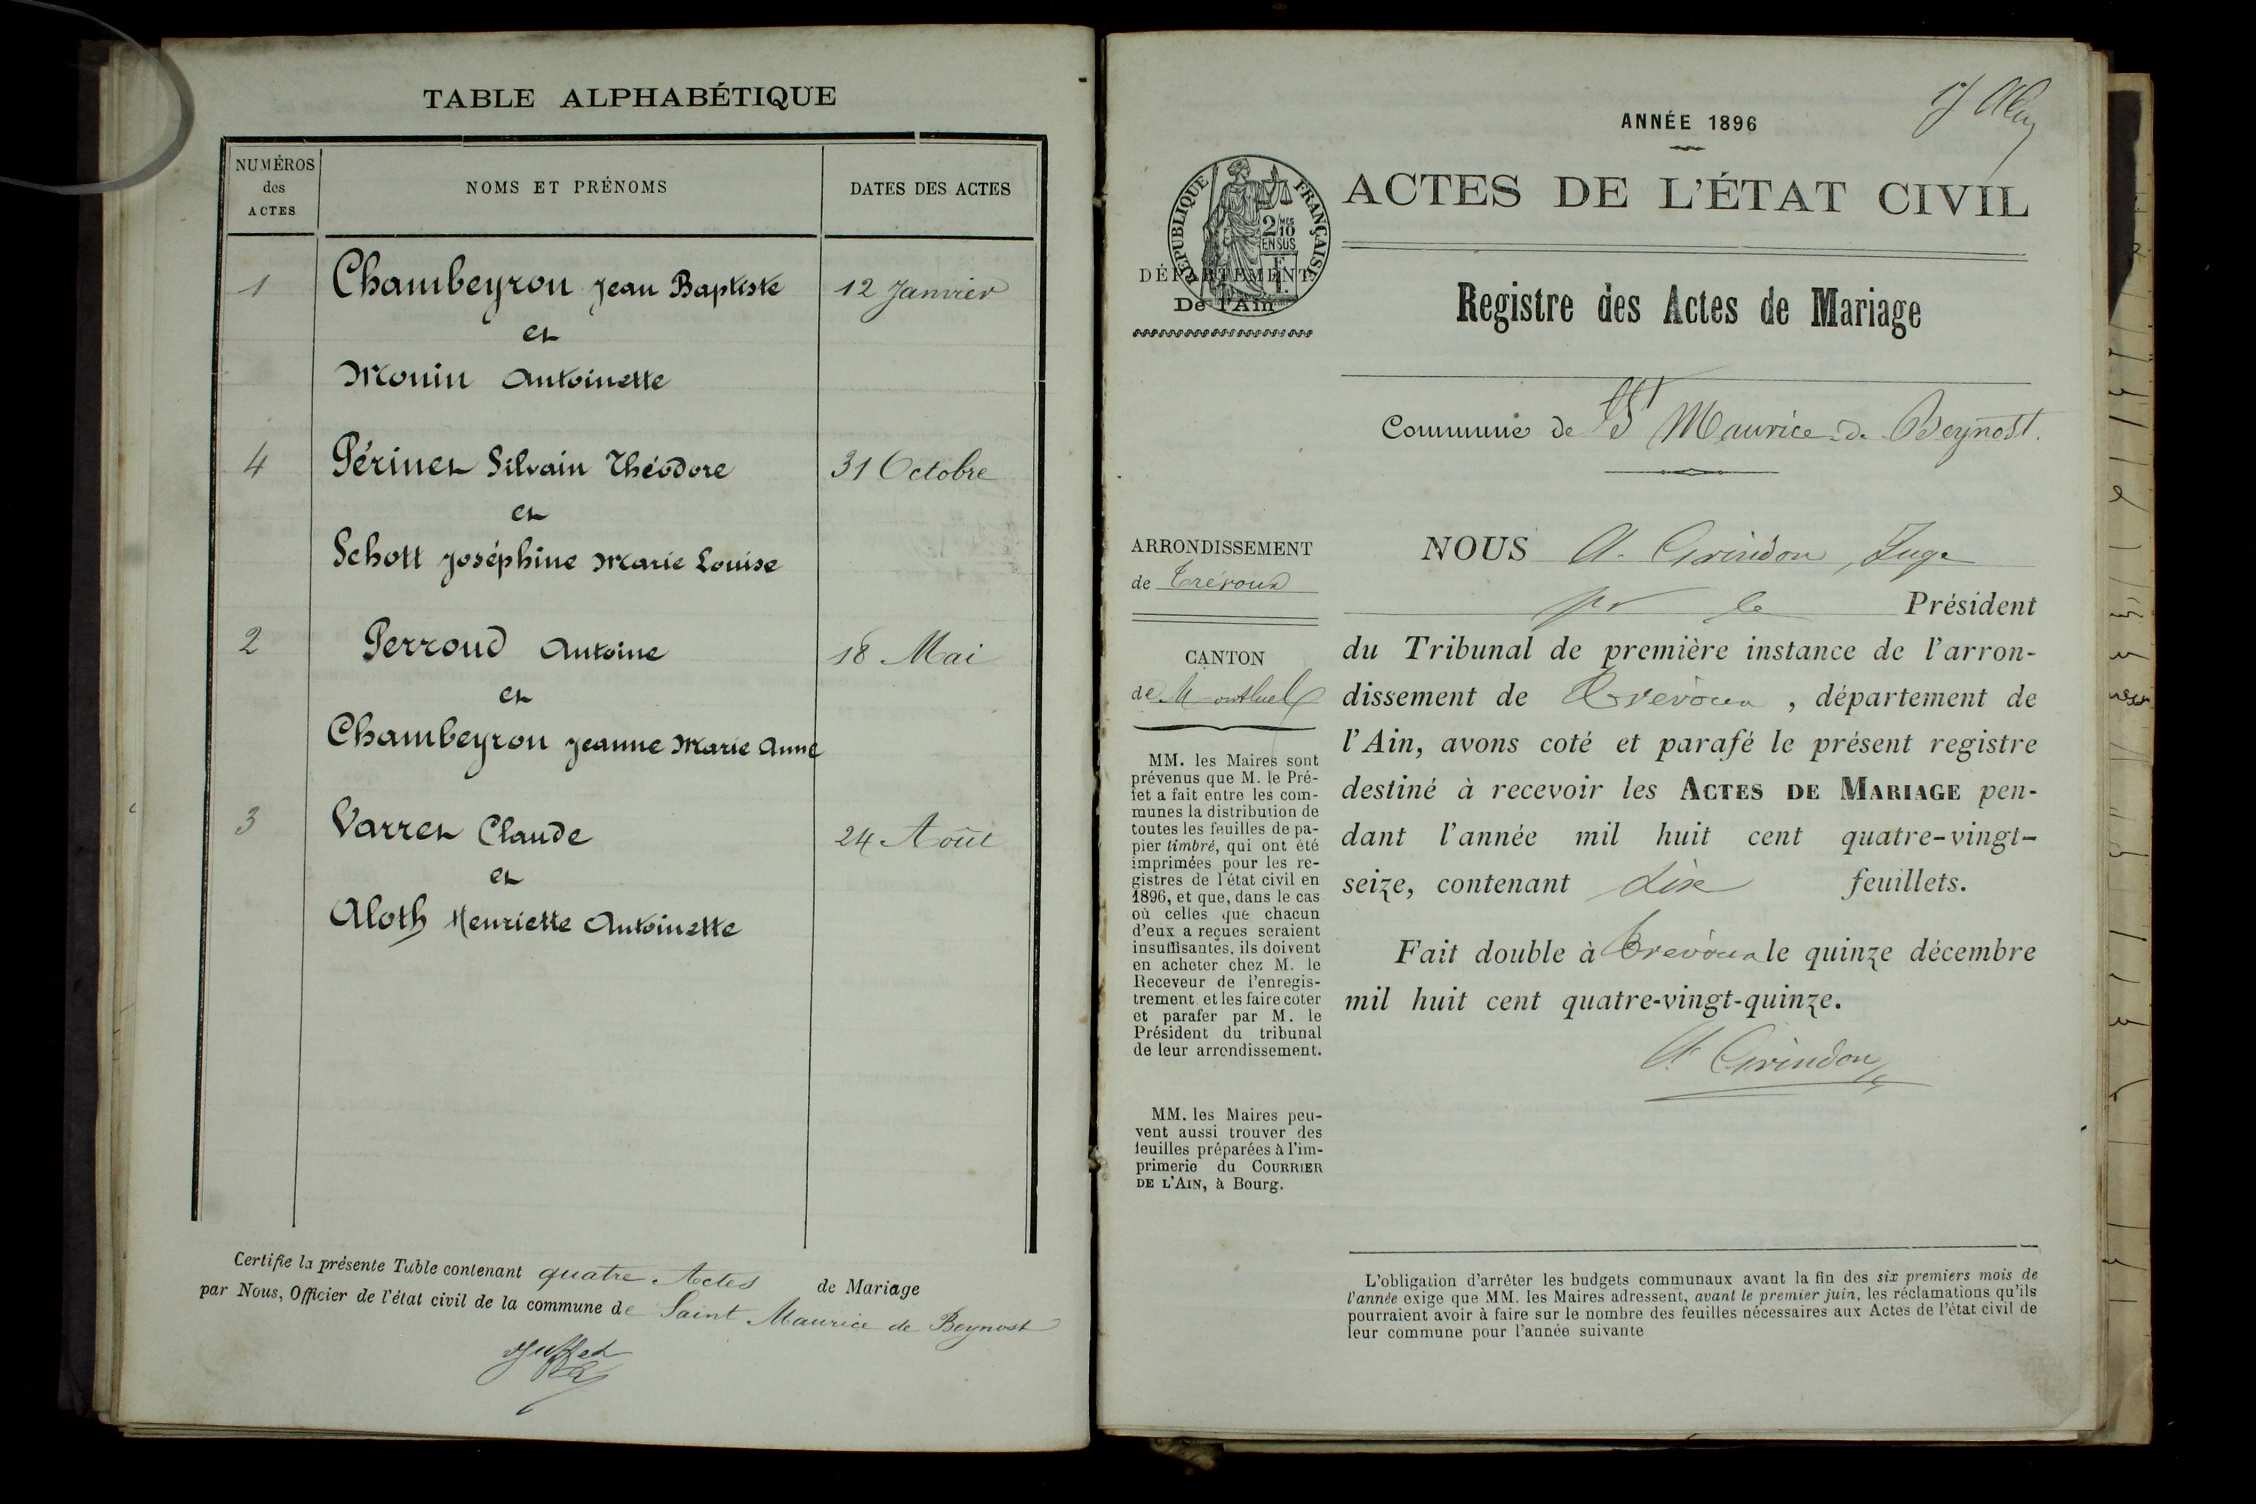 TABLE ALPHABÉTIQUE
NUMÉROS
des
ACTES
NOMS ET PRÉNOMS
DATES DES ACTES
1 Chambeyron Jean Baptiste 12 Janvier
et
Monin Antoinette
4 Périnet Silvain Théodore 31 Octobre
et
Schott Joséphine Marie Louise
2 Perroud Antoine 18 Mai
et
Chambeyron Jeanne Marie Anne
3 Varret Claude 24 Août
et
Aloth Henriette Antoinette
Certifie la présente Table contenant quatre Actes de Mariage
par Nous, Officier de l'état civil de la commune de Saint Maurice de Beynost
ANNÉE 1896
ACTES DE L'ÉTAT CIVIL
RÉPUBLIQUE FRANÇAISE
2/10
EN SUS
DÉPARTEMENT
De l'Ain
Registre des Actes de Mariage
Commune de St Maurice de Beynost.
ARRONDISSEMENT
de Trévoux
CANTON
de Montluel
MM. les Maires sont
prévenus que M. le Pré-
fet a fait entre les com-
munes la distribution de
toutes les feuilles de pa-
pier timbré, qui ont été
imprimées pour les re-
gistres de l'état civil en
1896, et que, dans le cas
où celles que chacun
d'eux a reçues seraient
insuffisantes, ils doivent
en acheter chez M. le
Receveur de l'enregis-
trement et les faire coter
et parafer par M. le
Président du tribunal
de leur arrondissement.
MM. les Maires peu-
vent aussi trouver des
feuilles préparées à l'im-
primerie du COURRIER
DE L'AIN, à Bourg.
NOUS A. Grindon, Juge
pr le Président
du Tribunal de première instance de l'arron-
dissement de Trévoux, département de
l'Ain, avons coté et parafé le présent registre
destiné à recevoir les ACTES DE MARIAGE pen-
dant l'année mil huit cent quatre-vingt-
seize, contenant dix feuillets.
Fait double à Trévoux le quinze décembre
mil huit cent quatre-vingt-quinze.
A. Grindon
L'obligation d'arrêter les budgets communaux avant la fin des six premiers mois de
l'année exige que MM. les Maires adressent, avant le premier juin, les réclamations qu'ils
pourraient avoir à faire sur le nombre des feuilles nécessaires aux Actes de l'état civil de
leur commune pour l'année suivante